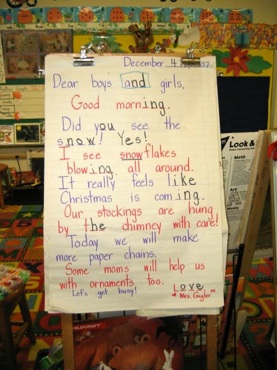 December 4, 2002
Dear boys and girls,
Good morning.
Did you see the
snow! Yes!
I see snowflakes
blowing all around.
It really feels like
Christmas is coming.
Our stockings are hung
by the chimney with care!
Today we will make
more paper chains.
Some moms will help us
with ornaments, too.
Let's get busy!
Love,
Mrs. Gugler
Look &